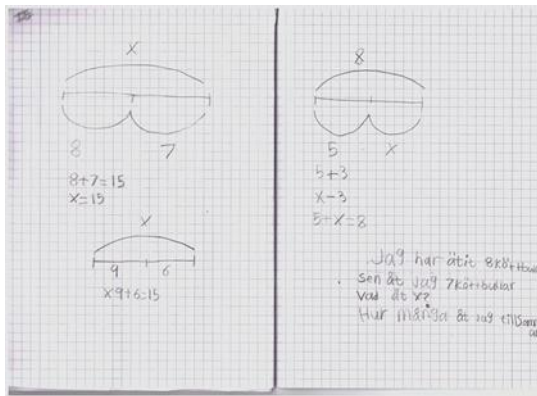 X
8 7
8+7=15
x=15
X
9 6
x9+6=15
8
5 x
5+3
x-3
5+x=8
Jag har ätit 8
Sen åt jag 7köttbullar
Vad åt X?
Hur många åt jag